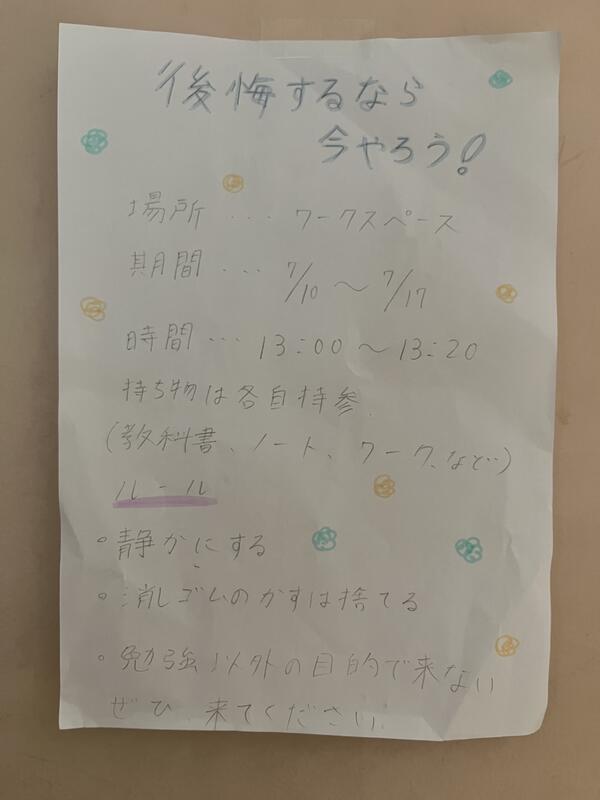 後悔するなら
今やろう!
場所 ... ワークスペース
期間 ... 7/10 〜 7/17
時間 ... 13:00 〜 13:20
持ち物は各自持参.
(教科書、ノート、ワーク、など…)
ルール
。静かにする
。消しゴムのかすは捨てる
。勉強以外の目的で来ない
ぜひ、来てください.